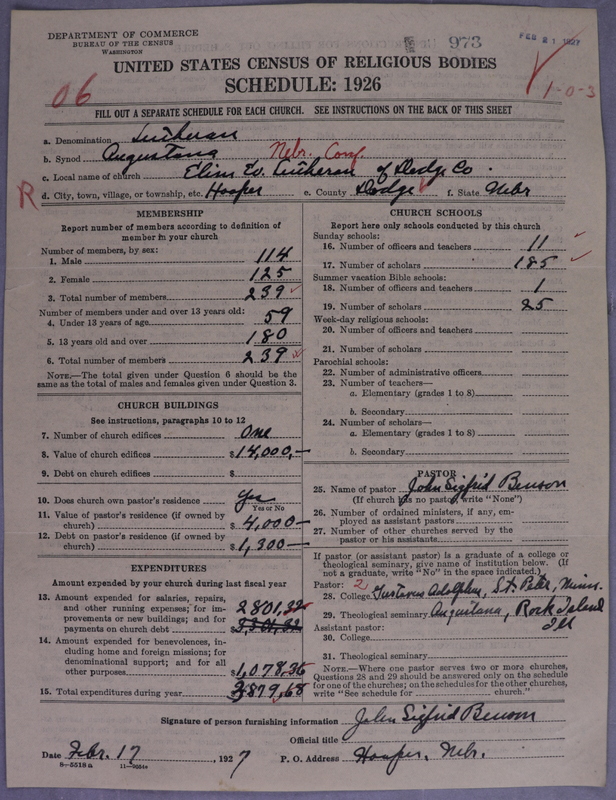 DEPARTMENT OF COMMERCE
BUREAU OF THE CENSUS
WASHINGTON
973
FEB 21 1927
UNITED STATES CENSUS OF RELIGIOUS BODIES
SCHEDULE: 1926
06
1-0-3
FILL OUT A SEPARATE SCHEDULE FOR EACH CHURCH. SEE INSTRUCTIONS ON THE BACK OF THIS SHEET
a. Denomination Lutheran
b. Synod Augustana Nebr. Conf
c. Local name of church Elim Ev. Lutheran of Dodge Co.
R
d. City, town, village, or township, etc. Hooper e. County Dodge f. State Nebr
MEMBERSHIP
Report number of members according to definition of member in your church
Number of members, by sex:
1. Male 114
2. Female 125
3. Total number of members 239
Number of members under and over 13 years old:
4. Under 13 years of age 59
5. 13 years old and over 180
6. Total number of members 239
NOTE.—The total given under Question 6 should be the same as the total of males and females given under Question 3.
CHURCH BUILDINGS
See instructions, paragraphs 10 to 12
7. Number of church edifices One
8. Value of church edifices $14,000,—
9. Debt on church edifices $
10. Does church own pastor's residence yes
Yes or No
11. Value of pastor's residence (if owned by church) $4,000—
12. Debt on pastor's residence (if owned by church) $1,300—
EXPENDITURES
Amount expended by your church during last fiscal year
13. Amount expended for salaries, repairs, and other running expenses; for improvements or new buildings; and for payments on church debt 2801,32
14. Amount expended for benevolences, including home and foreign missions; for denominational support; and for all other purposes $1,078,36
15. Total expenditures during year 3,879,68
CHURCH SCHOOLS
Report here only schools conducted by this church
Sunday schools:
16. Number of officers and teachers 11
17. Number of scholars 185
Summer vacation Bible schools:
18. Number of officers and teachers 1
19. Number of scholars 25
Week-day religious schools:
20. Number of officers and teachers
21. Number of scholars
Parochial schools:
22. Number of administrative officers
23. Number of teachers—
a. Elementary (grades 1 to 8)
b. Secondary
24. Number of scholars—
a. Elementary (grades 1 to 8)
b. Secondary
PASTOR
25. Name of pastor John Sigfrid Benson
(If church has no pastor, write "None")
26. Number of ordained ministers, if any, employed as assistant pastors
27. Number of other churches served by the pastor or his assistants
If pastor (or assistant pastor) is a graduate of a college or theological seminary, give name of institution below. (If not a graduate, write "No" in the space indicated.)
Pastor: 2
28. College Gustavus Adolphus, St. Peter, Minn.
29. Theological seminary Augustana, Rock Island Ill
Assistant pastor:
30. College
31. Theological seminary
NOTE.—Where one pastor serves two or more churches, Questions 28 and 29 should be answered only on the schedule for one of the churches; on the schedules for the other churches, write "See schedule for church."
Signature of person furnishing information John Sigfrid Benson
Official title
Date Febr. 17, 1927 P. O. Address Hooper, Nebr.
8-5518a 11-9654a